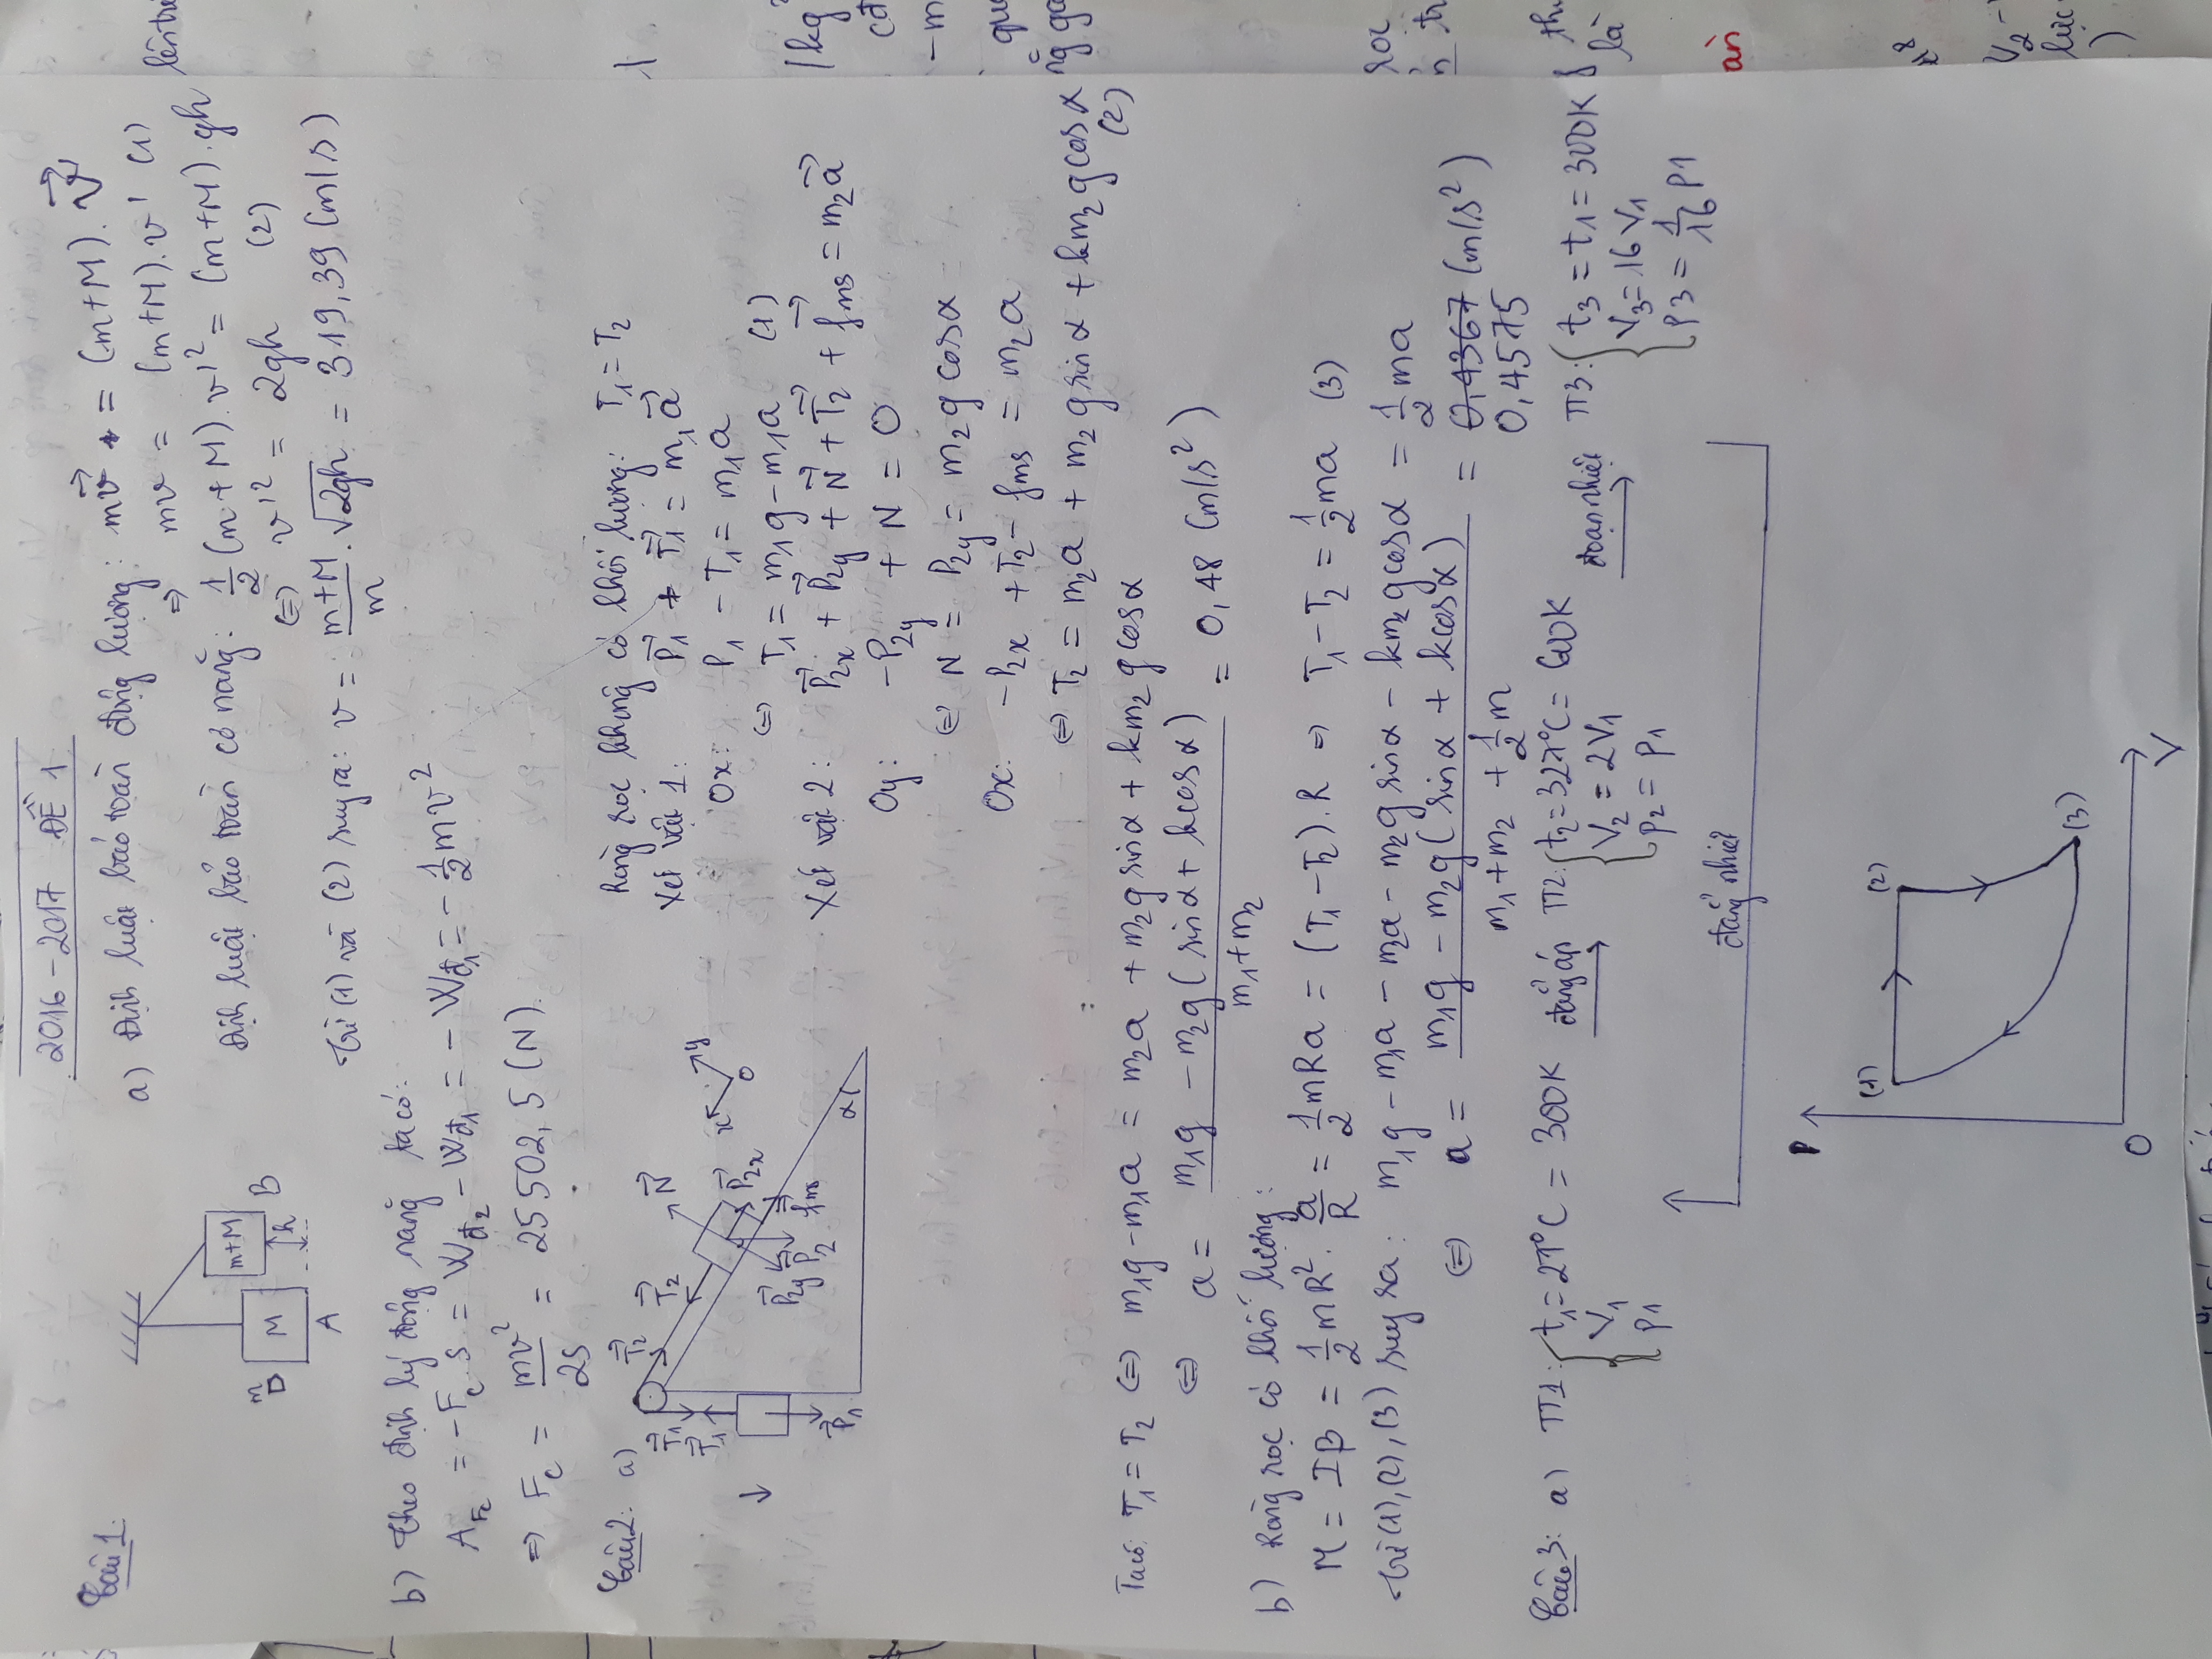 2016 - 2017 ĐỀ 1
Câu 1:
m
M
m+M
A
B
h
a) Định luật bảo toàn động lượng: mv⃗ = (m+M).v⃗'
⇒ mv = (m+M).v' (1)
Định luật bảo toàn cơ năng: 1/2 (m+M).v'² = (m+M).gh
⇔ v'² = 2gh (2)
Từ (1) và (2) suy ra: v = (m+M)/m . √2gh = 319,39 (m/s)
b) Theo định lý động năng ta có:
A_Fc = -Fc.s = Wđ2 - Wđ1 = - Wđ1 = - 1/2 mv²
⇒ Fc = mv²/2s = 25502,5 (N).
Câu 2: a)
T⃗2
T⃗2
N⃗
T⃗1
T⃗1
x
y
O
P⃗2x
P⃗2y
P⃗2
f⃗ms
P⃗1
α
Ròng rọc không có khối lượng: T1 = T2
Xét vật 1: P⃗1 + T⃗1 = m1a⃗
Ox: P1 - T1 = m1a
⇔ T1 = m1g - m1a (1)
Xét vật 2: P⃗2x + P⃗2y + N⃗ + T⃗2 + f⃗ms = m2a⃗
Oy: -P2y + N = 0
⇔ N = P2y = m2g cosα
Ox: -P2x + T2 - fms = m2a
⇔ T2 = m2a + m2g sinα + km2g cosα
(2)
Ta có: T1 = T2 ⇔ m1g - m1a = m2a + m2g sinα + km2g cosα
⇔ a = (m1g - m2g(sinα + kcosα))/(m1+m2) = 0,48 (m/s²)
b) Ròng rọc có khối lượng:
M = Iβ = 1/2 mR² . a/R = 1/2 mRa = (T1 - T2).R ⇒ T1 - T2 = 1/2 ma (3)
Từ (1), (2), (3) suy ra: m1g - m1a - m2a - m2g sinα - km2g cosα = 1/2 ma
⇔ a = (m1g - m2g(sinα + kcosα))/(m1 + m2 + 1/2 m) = 0,4367 (m/s²)
0,4575
Câu 3: a) TT1: t1 = 27°C = 300K đẳng áp TT2: t2 = 327°C = 600K đoạn nhiệt TT3: t3 = t1 = 300K
V1 V2 = 2V1 V3 = 16V1
p1 p2 = p1 p3 = 1/16 p1
đẳng nhiệt
P
(1)
(2)
(3)
O
V